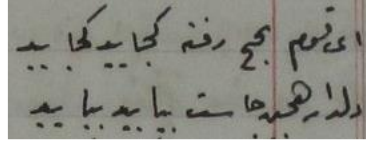 ای قوم بحج رفته کجایید کجایید
دلدار همین جاست بیایید بیایید